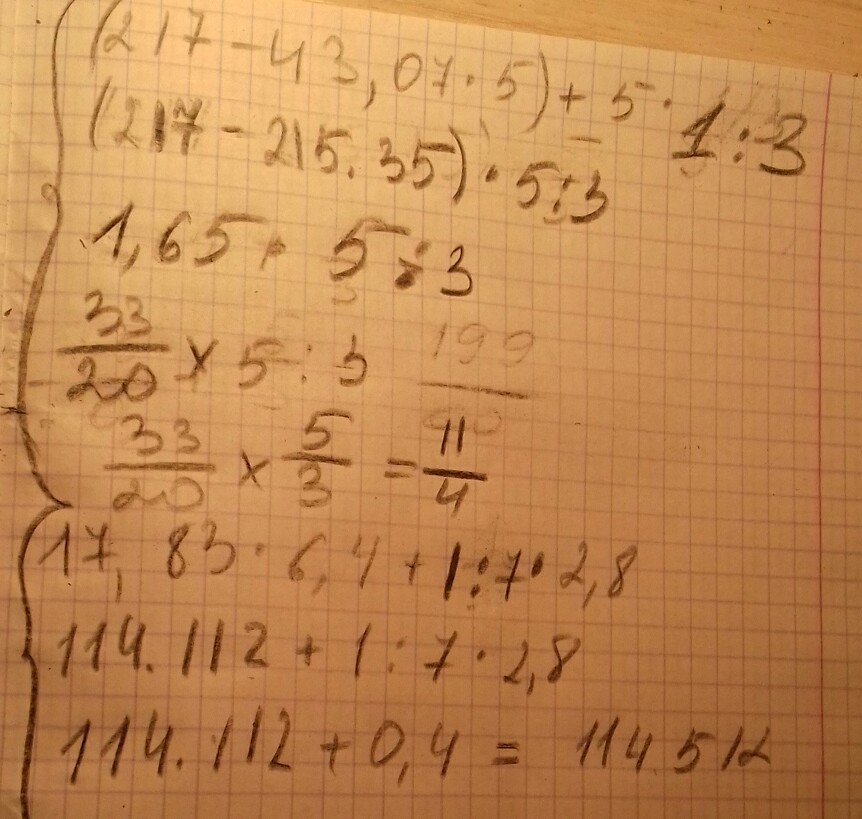 (217 - 43,07 · 5) + 5 · 1 : 3
(217 - 215.35) · 5 : 3
1,65 · 5 : 3
33/20 × 5 : 3 199
33/20 × 5/3 = 11/4
17, 83 · 6,4 + 1 : 7 · 2,8
114.112 + 1 : 7 · 2,8
114.112 + 0,4 = 114.512